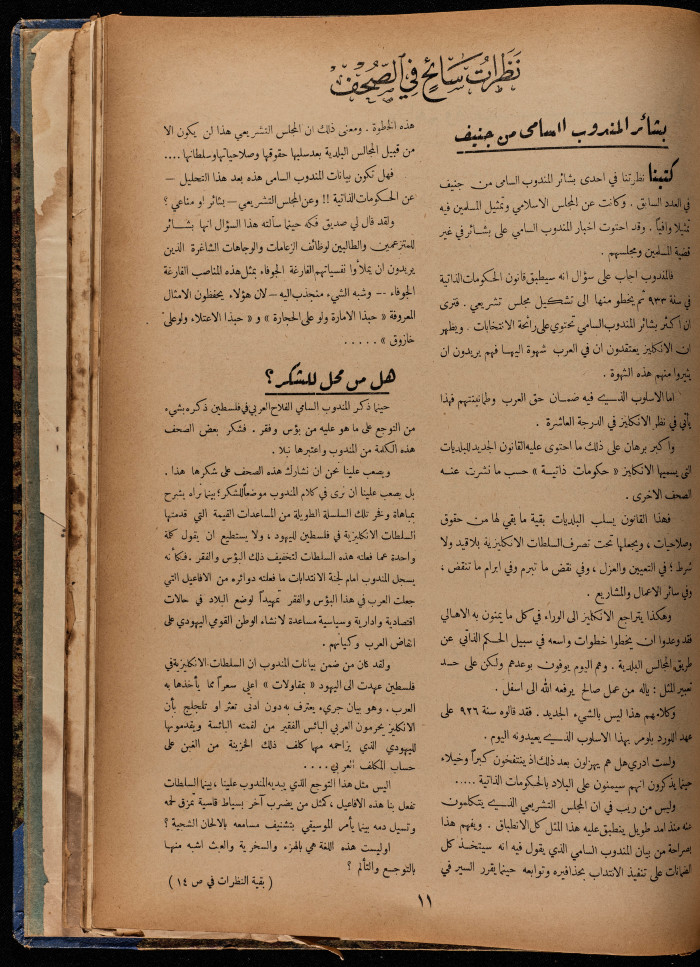 نظرات سائح في الصحف
بشائر المندوب السامى من جنيف
كتبنا نظرتنا في احدى بشائر المندوب السامى من جنيف
في العدد السابق . وكانت عن المجلس الاسلامي وتمثيل المسلمين فيه
تمثيلا وافياً . وقد احتوت اخبار المندوب السامي على بشائر في غير
قضية المسلمين ومجلسهم .
فالمندوب اجاب على سؤال انه سيطبق قانون الحكومات الذاتية
في سنة ٩٣٣ ثم يخطو منها الى تشكيل مجلس تشريعي . فترى
ان اكثر بشائر المندوب السامي تحتوي على رائحة الانتخابات . ويظهر
ان الانكليز يعتقدون ان في العرب شهوة اليها فهم يريدون ان
يثيروا منهم هذه الشهوة .
اما الاسلوب الذي فيه ضمان حق العرب وطمانينتهم فهذا
يأتي في نظر الانكليز في الدرجة العاشرة .
واكبر برهان على ذلك ما احتوى عليه القانون الجديد للبلديات
التي يسميها الانكليز « حكومات ذاتية » حسب ما نشرت عنه
الصحف الاخرى .
فهذا القانون يسلب البلديات بقية ما بقي لها من حقوق
وصلاحيات ، ويجعلها تحت تصرف السلطات الانكليزية بلا قيد ولا
شرط ؛ في التعيين والعزل ، وفي نقض ما تبرم وفي ابرام ما تنقض ،
وفي سائر الاعمال والمشاريع .
وهكذا يتراجع الانكليز الى الوراء في كل ما يمنون به الاهالي
فقد وعدوا ان يخطوا خطوات واسعه في سبيل الحكم الذاتي عن
طريق المجالس البلدية . وهم اليوم يوفون بوعدهم ولكن على حد
تعبير المثل : ياله من عمل صالح يرفعه الله الى اسفل .
وكلامهم هذا ليس بالشيء الجديد . فقد قالوه سنة ٩٢٦ على
عهد اللورد بلومر بهذا الاسلوب الذي يعيدونه اليوم .
ولست ادري هل هم يهزلون بعد ذلك اذ ينتفخون كبراً وخيلاء
حينما يذكرون انهم سيمنون على البلاد بالحكومات الذاتية .....
وليس من ريب في ان المجلس التشريعي الذي يتكلمون
عنه منذ امد طويل ينطبق عليه هذا المثل كل الانطباق . ويفهم هذا
بصراحة من بيان المندوب السامي الذي يقول فيه انه سيتخذ كل
الضمانات على تنفيذ الانتداب بحذافيره وتوابعه حينما يقرر السير في
هذه الخطوة . ومعنى ذلك ان المجلس التشريعي هذا لن يكون الا
من قبيل المجالس البلدية بعد سلبها حقوقها وصلاحياتها وسلطانها ....
فهل تكون بيانات المندوب السامى هذه بعد هذا التحليل —
عن الحكومات الذاتية !! وعن المجلس التشريعي — بشائر او مناعي ؟
ولقد قال لي صديق فكه حينما سألته هذا السؤال انها بشائر
للمتزعمين والطالبين لوظائف الزعامات والوجاهات الشاغرة الذين
يريدون ان يملأوا نفسياتهم الفارغة الجوفاء بمثل هذه المناصب الفارغة
الجوفاء -- وشبه الشيء منجذب اليه — لان هؤلاء يحفظون الامثال
المعروفة « حبذا الامارة ولو على الحجارة » و « حبذا الاعتلاء ولو على
خازوق » .....
هل من محل للشكر ؟
حينما ذكر المندوب السامي الفلاح العربي في فلسطين ذكره بشيء
من التوجع على ما هو عليه من بؤس وفقر . فشكر بعض الصحف
هذه الكلمة من المندوب واعتبرها نبلا .
ويصعب علينا نحن ان نشارك هذه الصحف على شكرها هذا .
بل يصعب علينا ان نرى في كلام المندوب موضعاً للشكر ؛ بينما نراه يشرح
بمباهاة وفخر تلك السلسلة الطويلة من المساعدات القيمة التي قدمتها
السلطات الانكليزية في فلسطين لليهود ، ولا يستطيع ان يقول كلمة
واحدة عما فعلته هذه السلطات لتخفيف ذلك البؤس والفقر . فكأنه
يسجل المندوب امام لجنة الانتدابات ما فعلته دوائره من الافاعيل التي
جعلت العرب في هذا البؤس والفقر تمهيداً لوضع البلاد في حالات
اقتصادية وادارية وسياسية مساعدة لانشاء الوطن القومي اليهودي على
انقاض العرب وكيانهم .
ولقد كان من ضمن بيانات المندوب ان السلطات الانكليزية في
فلسطين عهدت الى اليهود « بمقاولات » اعلى سعراً مما يأخذها به
العرب . وهو بيان جريء يعترف به دون ادنى تعثر او تلجلج بأن
الانكليز يحرمون العربي البائس الفقير من لقمته البائسة ويقدمونها
لليهودي الذي يزاحمه مهما كلف ذلك الخزينة من الغبن على
حساب المكلف العربي ....
اليس مثل هذا التوجع الذي يبديه المندوب علينا ، بينما السلطات
تفعل بنا هذه الافاعيل ، كمثل من يضرب آخر بسياط قاسية تمزق لحمه
وتسيل دمه بينما يأمر الموسيقي بتشنيف مسامعه بالالحان الشجية ؟
اوليست هذه اللغة هي بالهزء والسخرية والعبث اشبه منها
بالتوجع والتألم ؟
( بقية النظرات في ص ١٤ )
١١